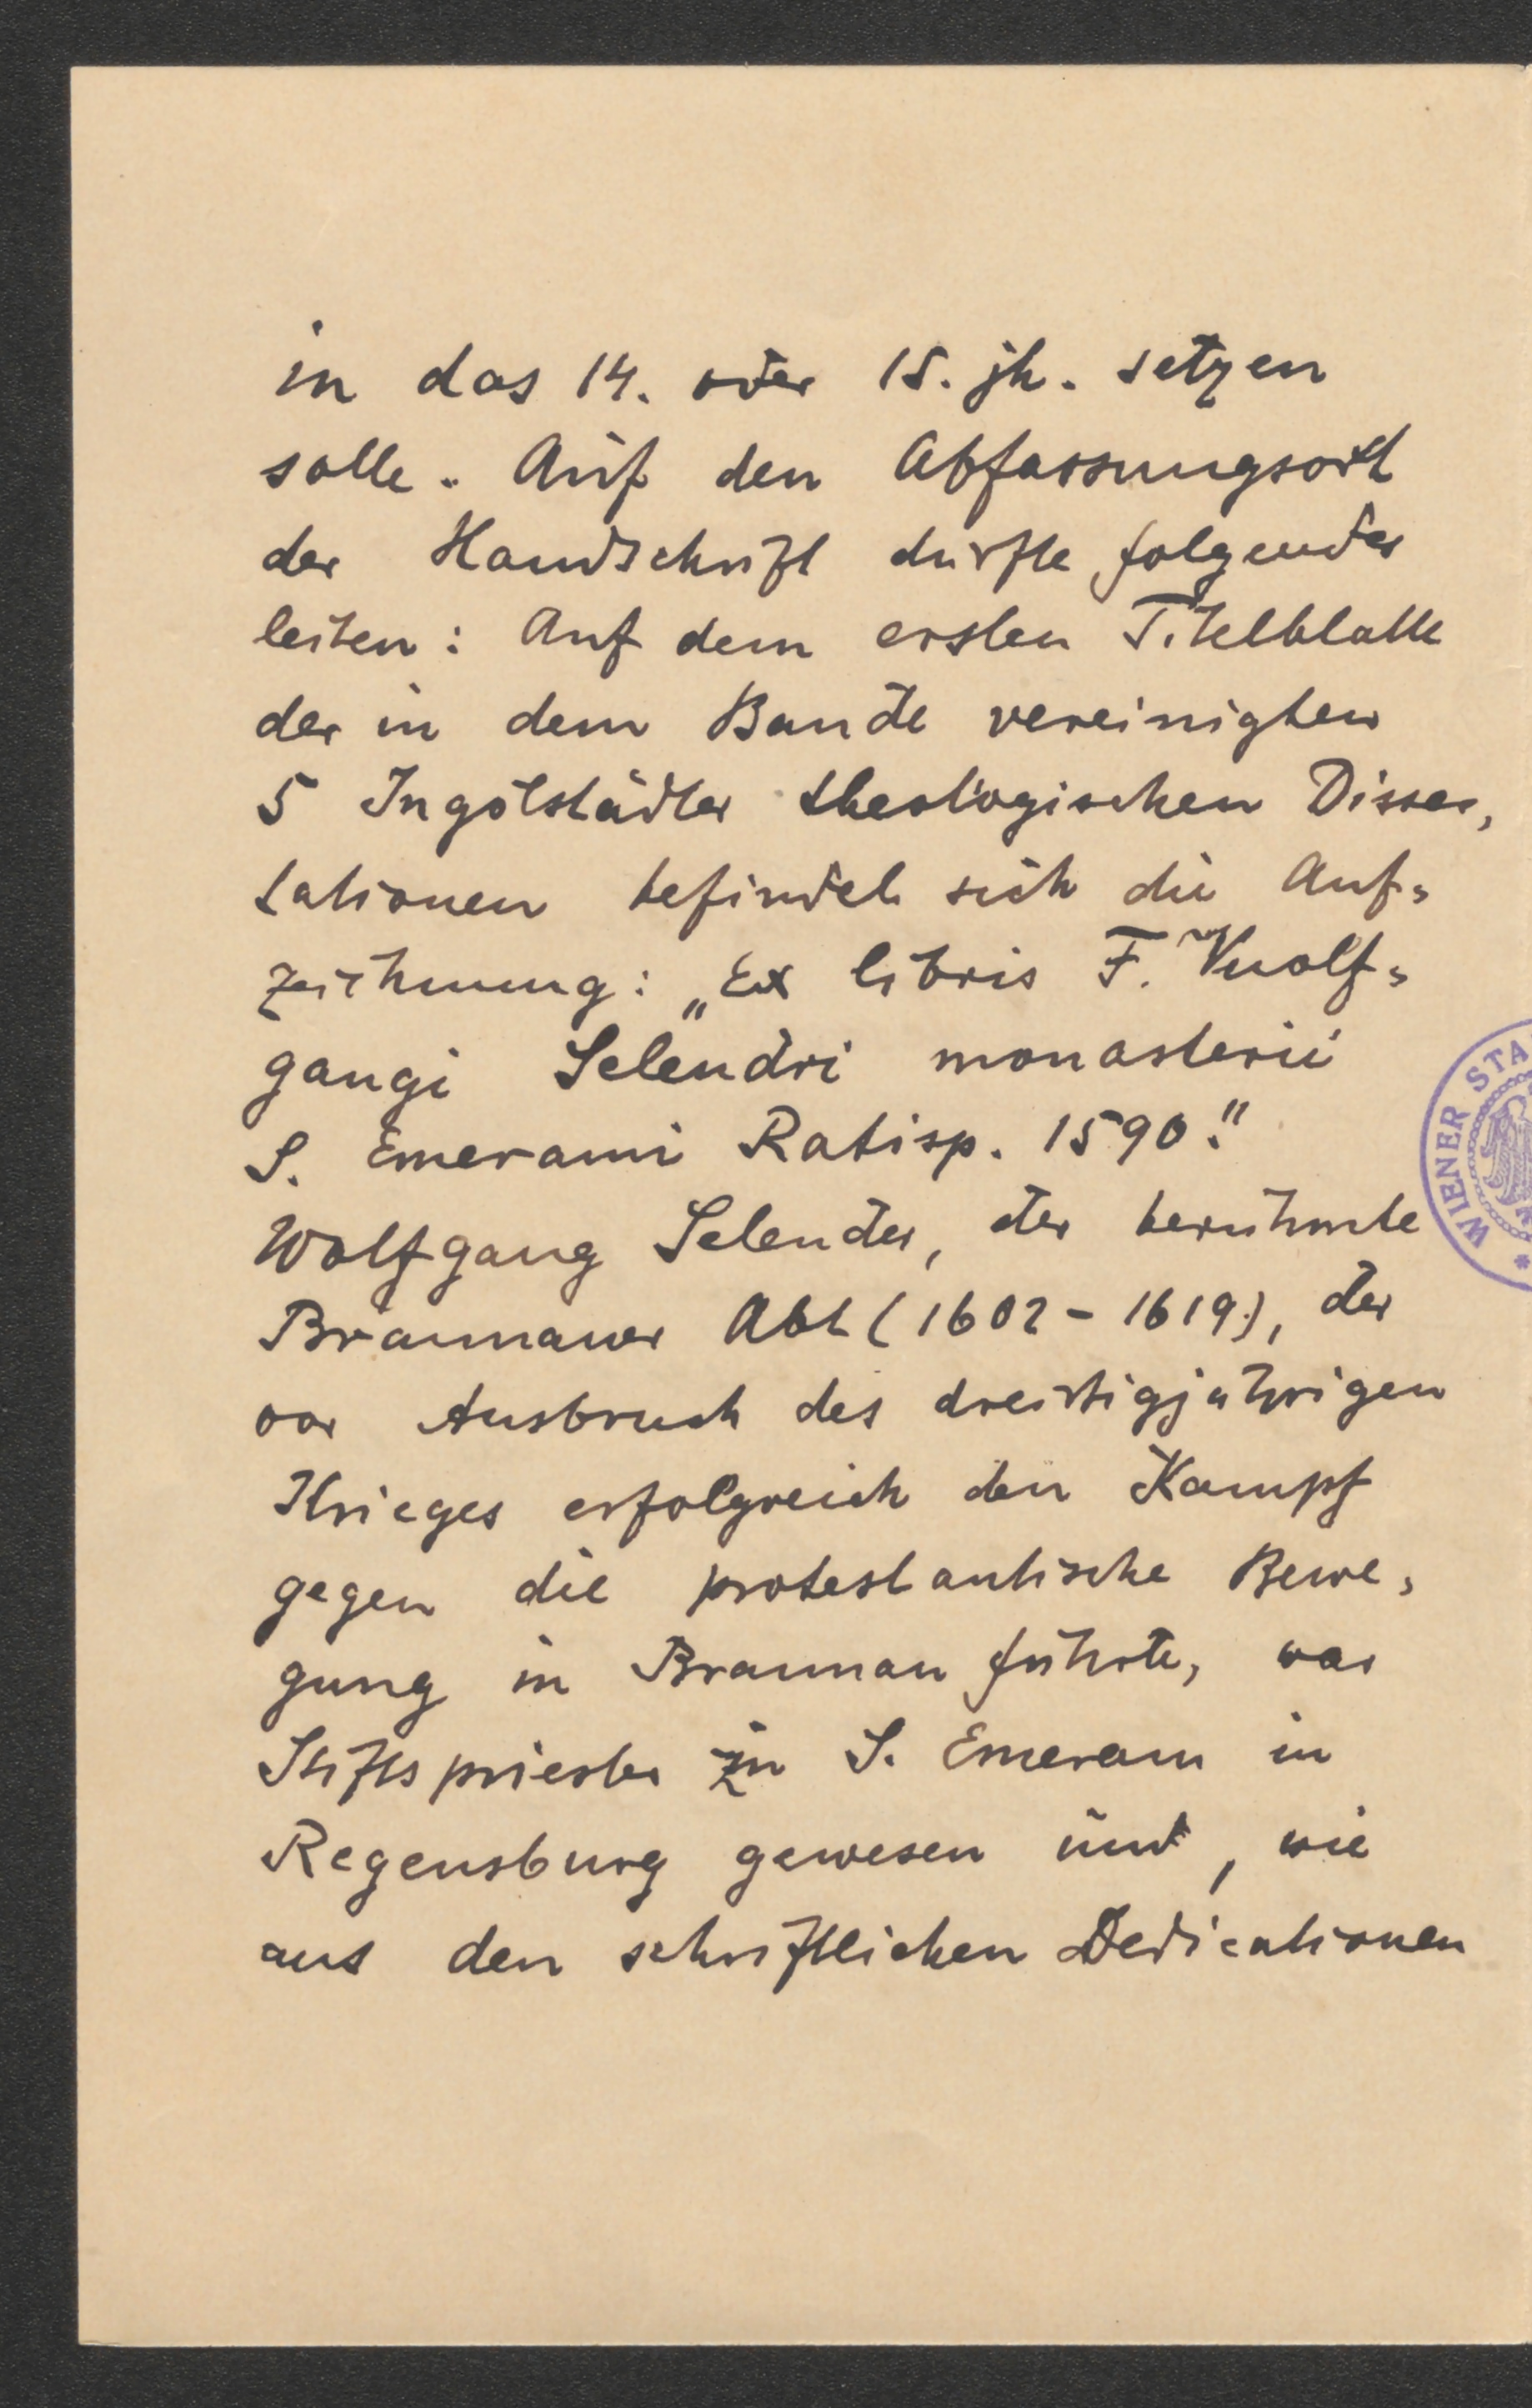 in das 14. oder 15. jh. setzen
solle. Auf den Abfassungsort
der Handschrift dürfte folgendes
leiten: Auf dem ersten Titelblatte
der in dem Bande vereinigten
5 Ingolstädter theologischen Disser,
tationen befindet sich die Auf=
zeichnung: „Ex libris F. Vuolf=
gangi Selendri monasterii
S. Emerami Ratisp. 1590."
Wolfgang Selender, der berühmte
Braunauer Abt (1602 - 1619), der
vor Ausbruch des dreißigjährigen
Krieges erfolgreich den Kampf
gegen die protestantische Bewe,
gung in Braunau führte, war
Stiftspriester zu S. Emeram in
Regensburg gewesen und, wie
aus den schriftlichen Dedicationen
WIENER STA